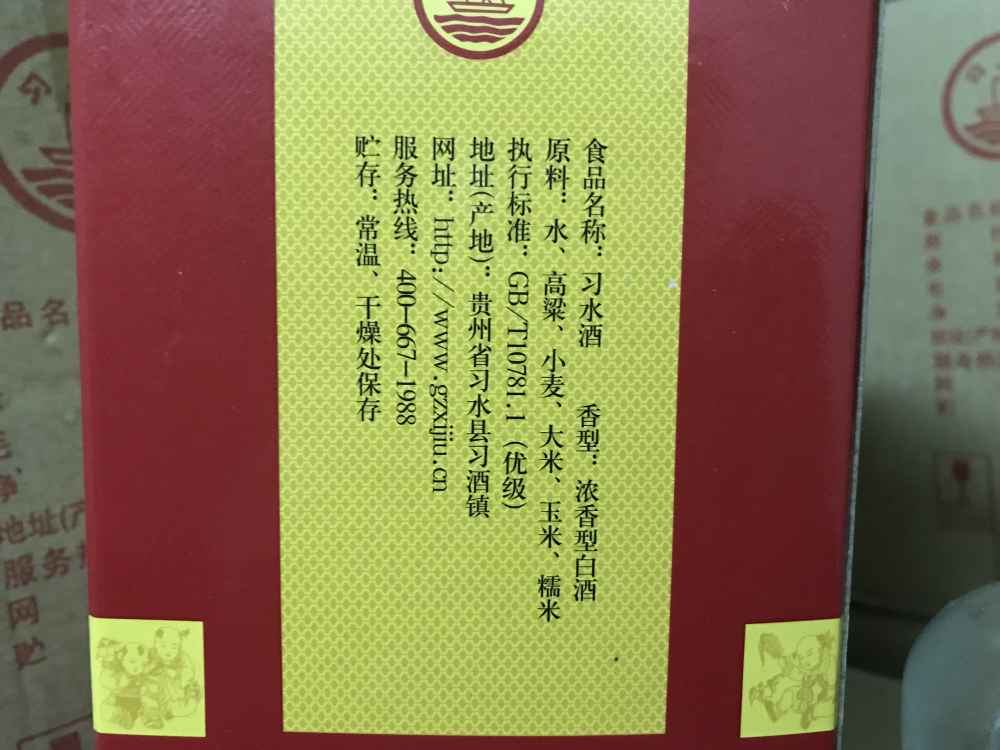 食品名称：习水酒 香型：浓香型白酒
原料：水、高粱、小麦、大米、玉米、糯米
执行标准：GB/T10781.1（优级）
地址(产地)：贵州省习水县习酒镇
网址：http://www.gzxijiu.cn
服务热线：400-667-1988
贮存：常温、干燥处保存
品名
地址(产
服务热
网
贮